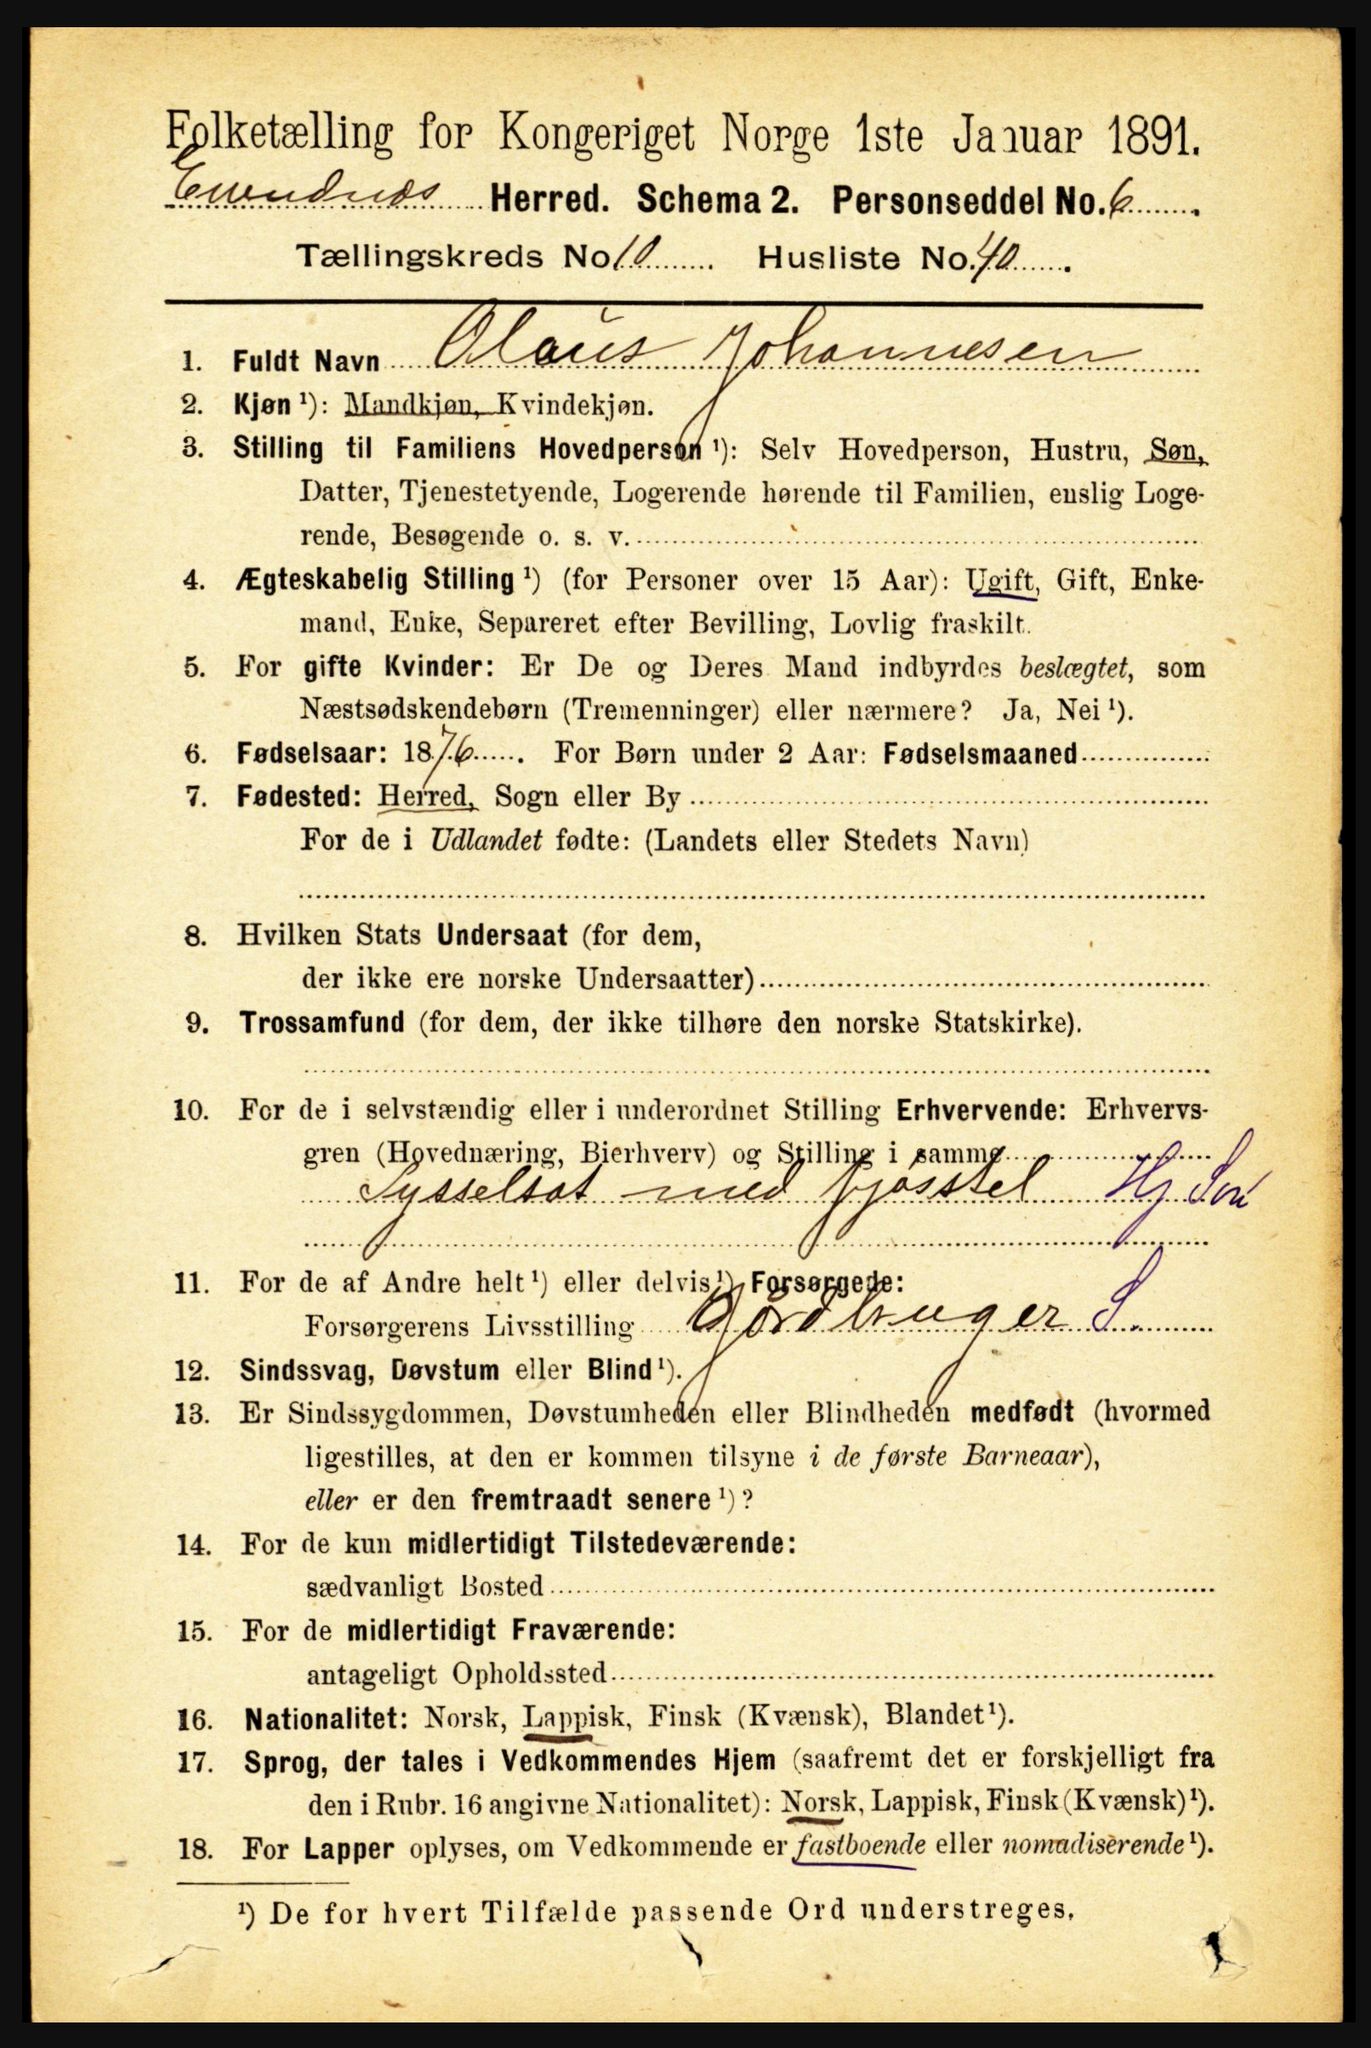 Folketælling for Kongeriget Norge 1ste Januar 1891.
Evendnæs Herred. Schema 2. Personseddel No. 6
Tællingskreds No 10 Husliste No. 40
1. Fuldt Navn Olaus Johannesen
2. Kjøn ¹): Mandkjøn, Kvindekjøn.
3. Stilling til Familiens Hovedperson ¹): Selv Hovedperson, Hustru, Søn,
Datter, Tjenestetyende, Logerende hørende til Familien, enslig Loge-
rende, Besøgende o. s. v.
4. Ægteskabelig Stilling ¹) (for Personer over 15 Aar): Ugift, Gift, Enke-
mand, Enke, Separeret efter Bevilling, Lovlig fraskilt.
5. For gifte Kvinder: Er De og Deres Mand indbyrdes beslægtet, som
Næstsødskendebørn (Tremenninger) eller nærmere? Ja, Nei ¹).
6. Fødselsaar: 1876. For Børn under 2 Aar: Fødselsmaaned
7. Fødested: Herred, Sogn eller By
For de i Udlandet fødte: (Landets eller Stedets Navn)
8. Hvilken Stats Undersaat (for dem,
der ikke ere norske Undersaatter)
9. Trossamfund (for dem, der ikke tilhøre den norske Statskirke).
10. For de i selvstændig eller i underordnet Stilling Erhvervende: Erhvervs-
gren (Hovednæring, Bierhverv) og Stilling i samme
Sysselsat med fjøsstel Hj Søn
11. For de af Andre helt ¹) eller delvis ¹) Forsørgede:
Forsørgerens Livsstilling Gårdbruger S.
12. Sindssvag, Døvstum eller Blind ¹).
13. Er Sindssygdommen, Døvstumheden eller Blindheden medfødt (hvormed
ligestilles, at den er kommen tilsyne i de første Barneaar),
eller er den fremtraadt senere ¹)?
14. For de kun midlertidigt Tilstedeværende:
sædvanligt Bosted
15. For de midlertidigt Fraværende:
antageligt Opholdssted
16. Nationalitet: Norsk, Lappisk, Finsk (Kvænsk), Blandet ¹).
17. Sprog, der tales i Vedkommendes Hjem (saafremt det er forskjelligt fra
den i Rubr. 16 angivne Nationalitet): Norsk, Lappisk, Finsk (Kvænsk) ¹).
18. For Lapper oplyses, om Vedkommende er fastboende eller nomadiserende ¹).
¹) De for hvert Tilfælde passende Ord understreges.